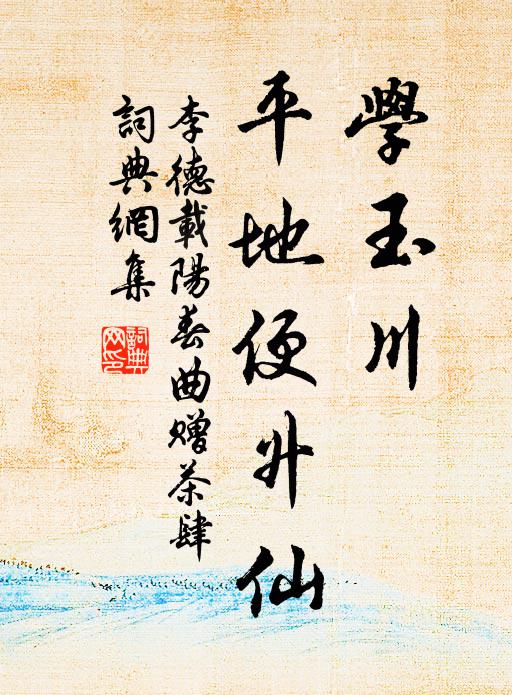 學玉川
平地便升仙
李德載陽春曲贈茶肆
詞典網集
詞典
网印